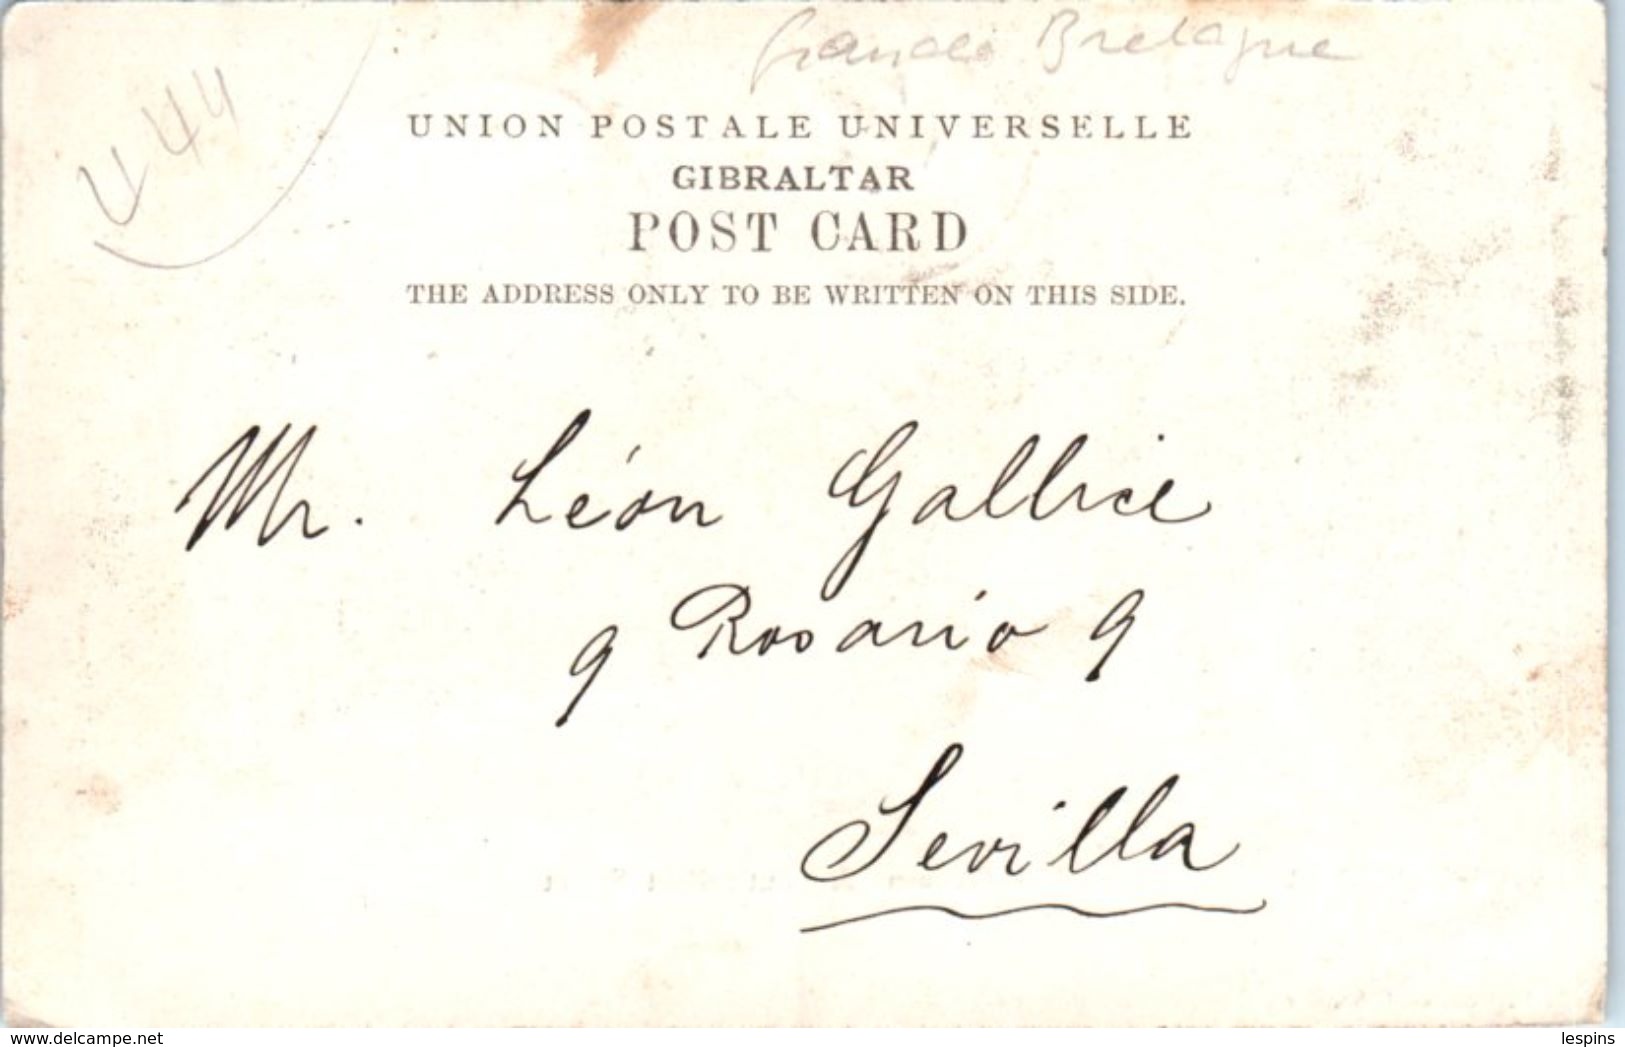 grande Bretagne
UNION POSTALE UNIVERSELLE
GIBRALTAR
POST CARD
THE ADDRESS ONLY TO BE WRITTEN ON THIS SIDE.
Mr. Léon Gallice
9 Rosario 9
Sevilla
www.delcampe.net
lespins